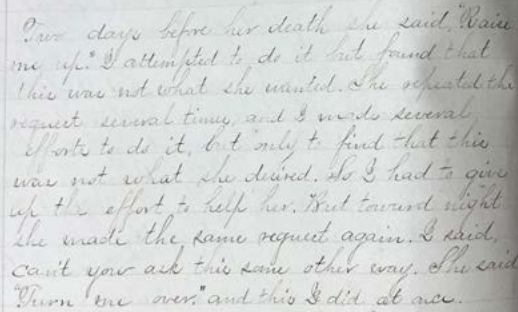 Two days before her death she said, "Raise
me up." I attempted to do it but found that
this was not what she wanted. She repeated the
request several times, and I made several
efforts to do it, but only to find that this
was not what she desired. So I had to give
up the effort to help her. But toward night
she made the same request again. I said,
can't you ask this some other way. She said
"Turn me over." and this I did at once.